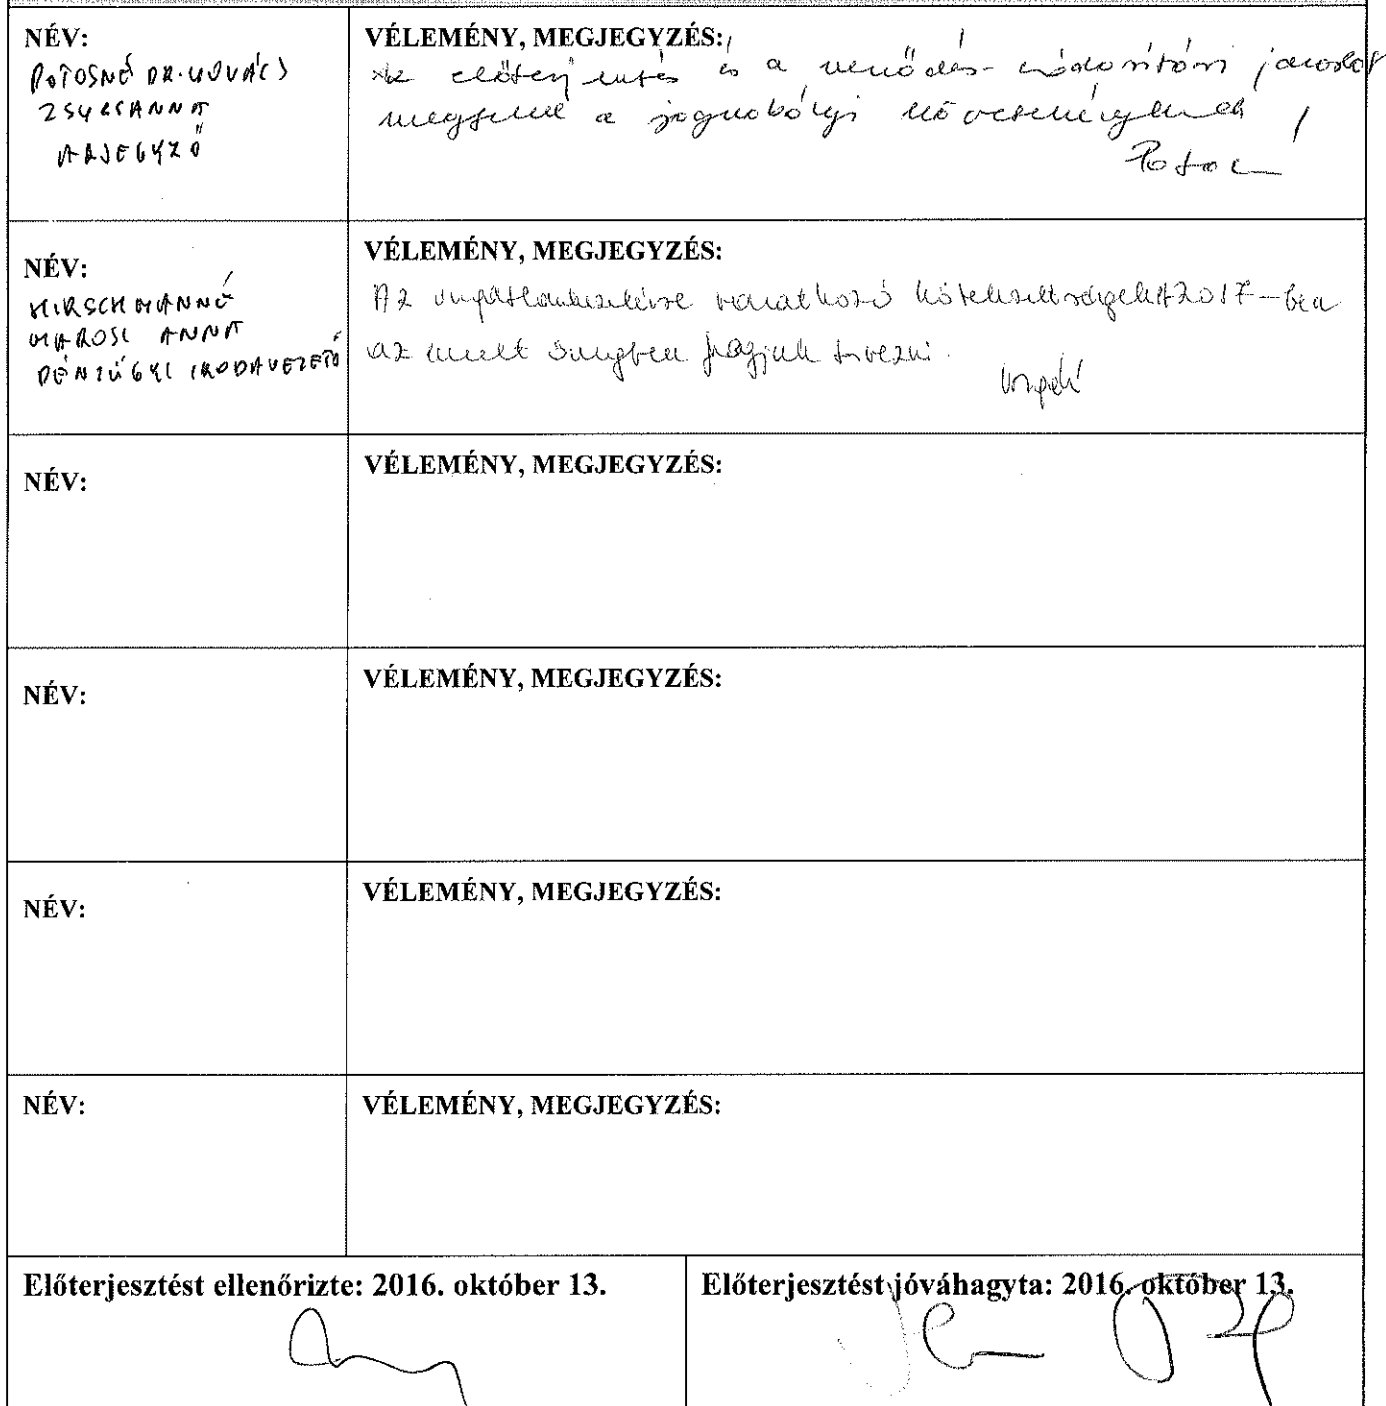 NÉV:
POTOSNÉ DR. KOVÁCS
ZSUZSANNA
ALJEGYZŐ
VÉLEMÉNY, MEGJEGYZÉS:
Az előterjesztés és a szerződés-módosítási javaslat
megfelel a jogszabályi követelményeknek
NÉV:
HIRSCHMANNÉ
MAROSI ANNA
PÉNZÜGYI IRODAVEZETŐ
VÉLEMÉNY, MEGJEGYZÉS:
Az ingatlankezelésre vonatkozó kötelezettségeket 2017-ben
az emelt összegben fogjuk tervezni.
NÉV:
VÉLEMÉNY, MEGJEGYZÉS:
NÉV:
VÉLEMÉNY, MEGJEGYZÉS:
NÉV:
VÉLEMÉNY, MEGJEGYZÉS:
NÉV:
VÉLEMÉNY, MEGJEGYZÉS:
Előterjesztést ellenőrizte: 2016. október 13.
Előterjesztést jóváhagyta: 2016. október 13.